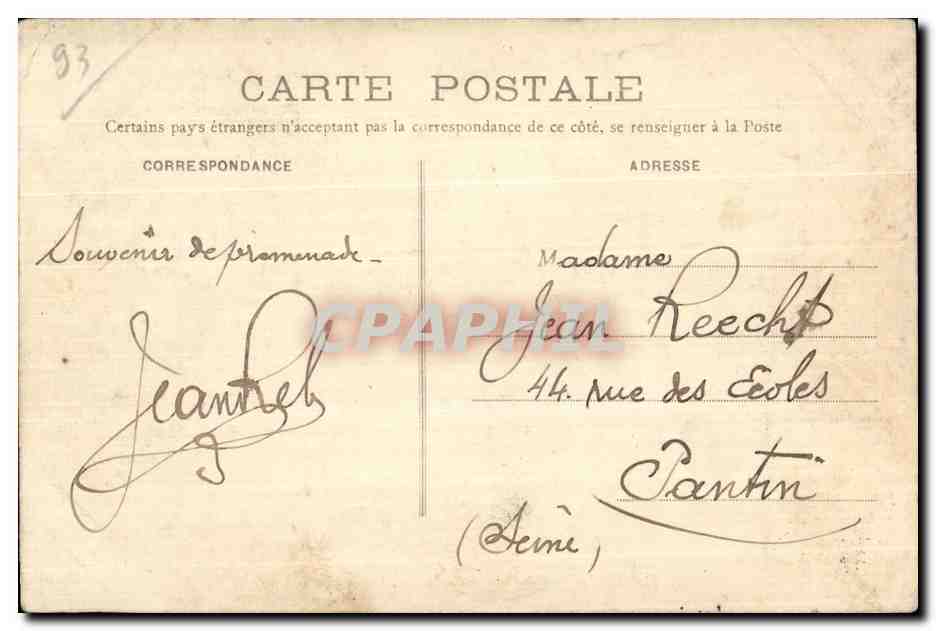 93
CARTE POSTALE
Certains pays étrangers n'acceptant pas la correspondance de ce côté, se renseigner à la Poste
CORRESPONDANCE
ADRESSE
Souvenir de promenade -
Madame
Jean Reecht
44. rue des Ecoles
Pantin
(Seine)
CPAPHIL